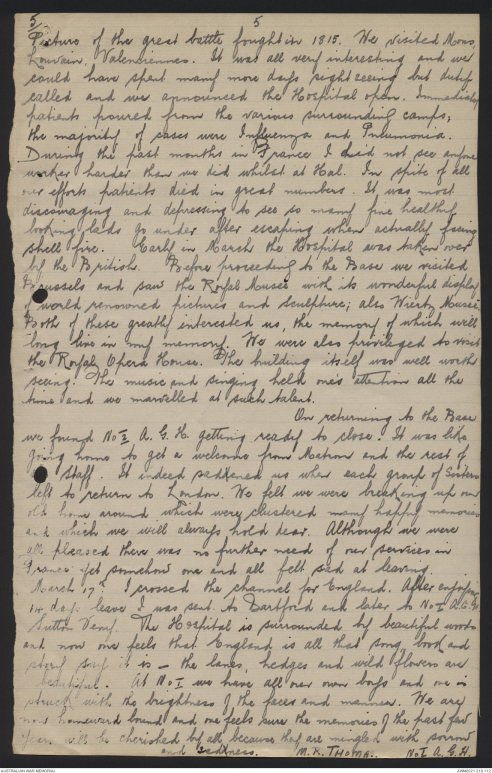 5 5
Picture of the great battle fought in 1815. We visited Mons,
Louvain, Valenciennes. It was all very interesting and we
could have spent many more days sight seeing but duty
called and we announced the Hospital open. Immediately
patients poured from the various surrounding camps;
the majority of cases were Influenza and Pneumonia.
During the past months in France I did not see anyone
worker harder than we did whilst at Hal. In spite of all
our efforts patients died in great numbers. It was most
discouraging and depressing to see so many fine healthy
looking lads go under after escaping when actually facing
shell fire. Early in March the Hospital was taken over
by the British. Before proceeding to the Base we visited
Brussels and saw the Royal Museé with its wonderful display
of world renowned pictures and sculpture; also Wiertz Museé.
Both of these greatly interested us, the memory of which will
long live in my memory. We were also privileged to visit
the Royal Opera House. The building itself was well worth
seeing. The music and singing held one's attention all the
time and we marvelled at such talent.
On returning to the Base
we found No 2 A. G. H. getting ready to close. It was like
going home to get a welcome from Matron and the rest of
staff. It indeed saddened us when each group of Sisters
left to return to London. We felt we were breaking up our
old home around which were clustered many happy memories
and which we will always hold dear. Although we were
all pleased there was no further need of our services in
France yet somehow one and all felt sad at leaving.
March 17th I crossed the channel for England. After enjoying
days leave I was sent to Dartford and later to No 1 A.G.H.
Sutton Veny. The Hospital is surrounded by beautiful woods
and now one feels that England is all that song, book and
story say it is — the lanes, hedges and wild flowers are
beautiful. At No I we have all our own boys and one is
struck with the brightness of the faces and manner. We are
now homeward bound and one feels sure the memories of the past few
years will be cherished by all, because they are mingled with sorrow
and sadness. M. R. THOMA. No 1 A. G. H.
AUSTRALIAN WAR MEMORIAL